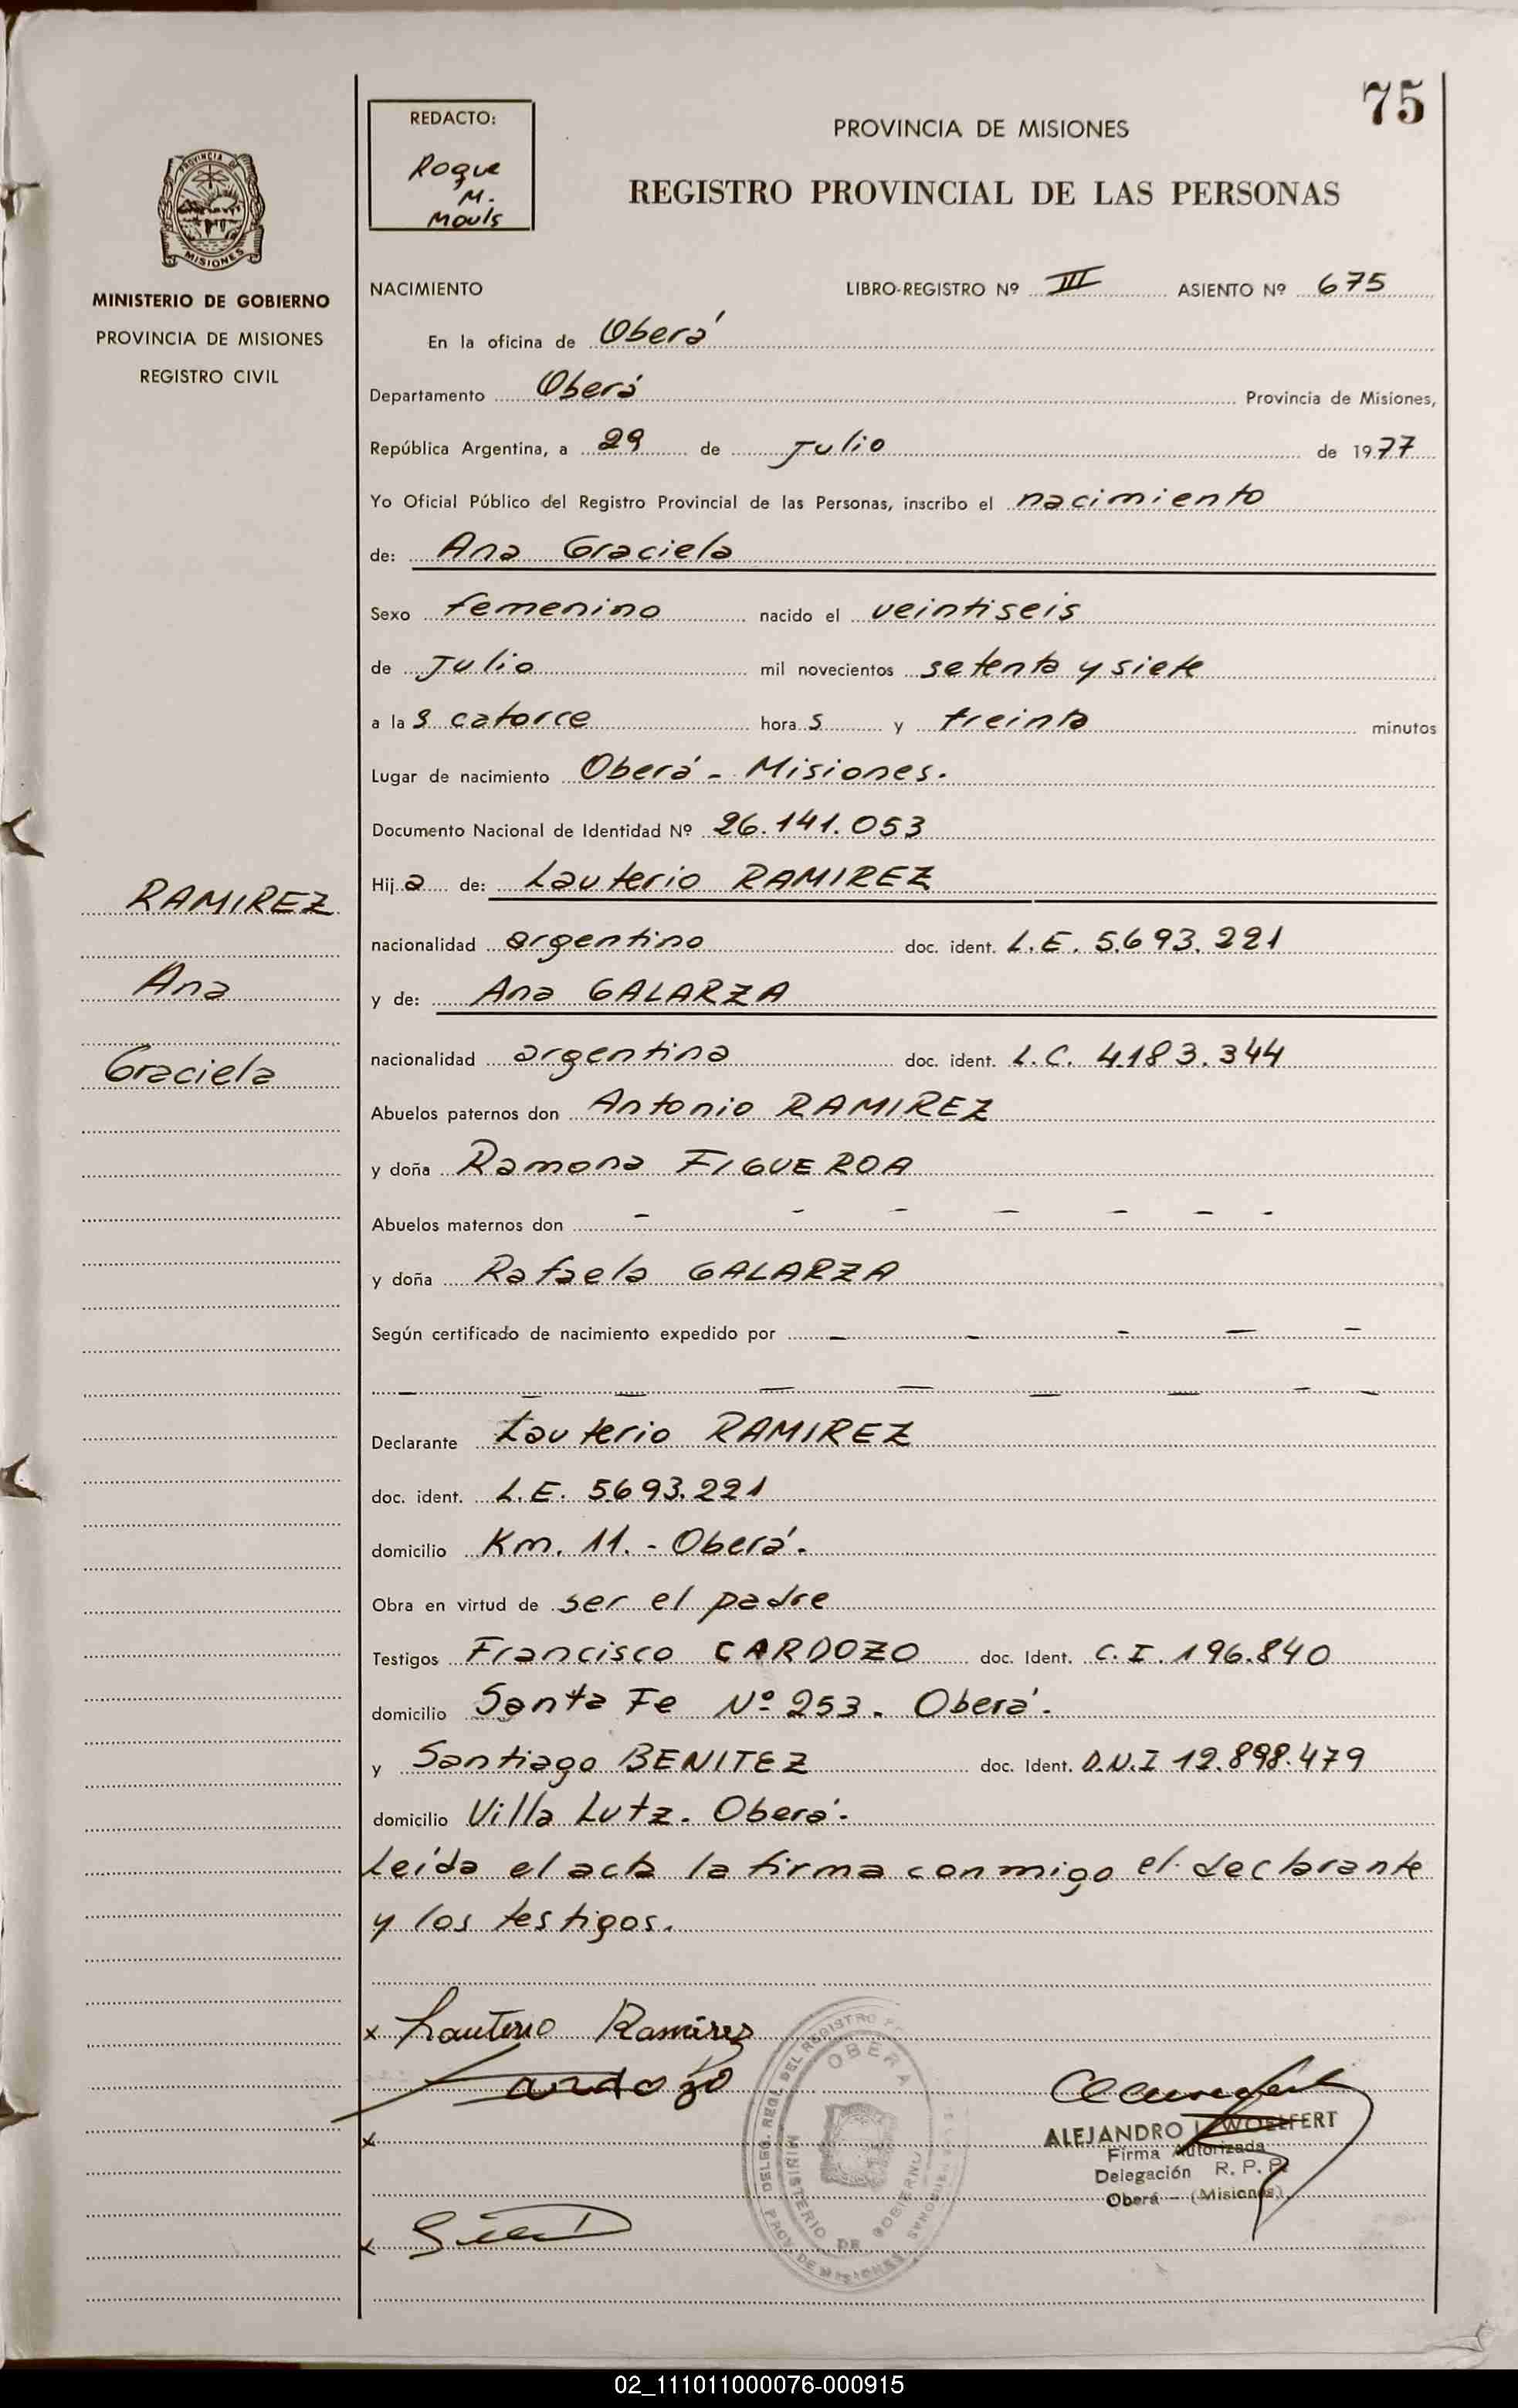 75
REDACTO:
Roque
M.
Mouls
PROVINCIA DE MISIONES
REGISTRO PROVINCIAL DE LAS PERSONAS
PROVINCIA DE
MISIONES
MINISTERIO DE GOBIERNO
PROVINCIA DE MISIONES
REGISTRO CIVIL
NACIMIENTO LIBRO-REGISTRO Nº III ASIENTO Nº 675
En la oficina de Oberá
Departamento Oberá Provincia de Misiones,
República Argentina, a 29 de Julio de 1977
Yo Oficial Público del Registro Provincial de las Personas, inscribo el nacimiento
de: Ana Graciela
Sexo femenino nacido el veintiseis
de Julio mil novecientos setenta y siete
a las catorce horas y treinta minutos
Lugar de nacimiento Oberá - Misiones.
Documento Nacional de Identidad Nº 26.141.053
Hija de: Lauterio RAMIREZ
RAMIREZ
nacionalidad argentino doc. ident. L.E. 5.693.221
Ana
y de: Ana GALARZA
Graciela
nacionalidad argentina doc. ident. L.C. 4.183.344
Abuelos paternos don Antonio RAMIREZ
y doña Ramona FIGUEROA
Abuelos maternos don - - - - - - -
y doña Rafaela GALARZA
Según certificado de nacimiento expedido por - - - - -
- - - - - - - - -
Declarante Lauterio RAMIREZ
doc. ident. L.E. 5.693.221
domicilio Km. 11. - Oberá.
Obra en virtud de ser el padre
Testigos Francisco CARDOZO doc. Ident. C.I. 196.840
domicilio Santa Fe Nº 253. Oberá.
y Santiago BENITEZ doc. Ident. D.N.I 12.898.479
domicilio Villa Lutz. Oberá.
Leída el acta la firma conmigo el declarante
y los testigos.
x Lauterio Ramirez
Cardozo
x
x
DELEG. REGI. DEL REGISTRO
OBERA
MINISTERIO DE GOBIERNO
PROV. DE MISIONES
ALEJANDRO L. WOELFERT
Firma Autorizada
Delegación R. P. P.
Oberá - (Misiones)
02_111011000076-000915